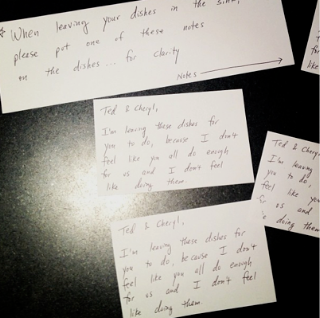 * When leaving your dishes in the sink,
please put one of these notes
on the dishes... for clarity
Notes
Ted & Cheryl,
I'm leaving these dishes for
you to do, because I don't
feel like you all do enough
for us and I don't feel
like doing them
Ted & Cheryl,
I'm leaving these dishes for
you to do, because I don't
feel like you all do enough
for us and I don't feel
like doing them
Ted & Cheryl,
I'm leaving
you to do,
feel like you
for us and
doing them
like